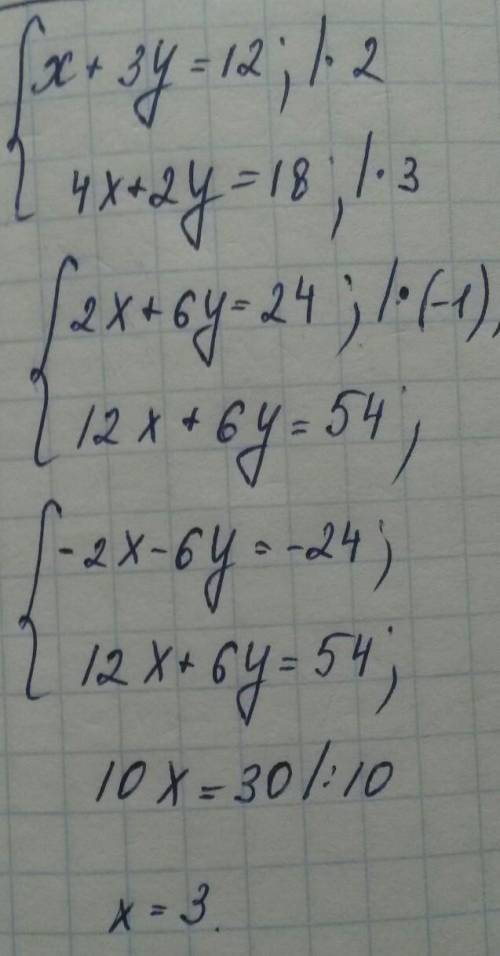 x + 3y = 12; | · 2
4x + 2y = 18; | · 3
2x + 6y = 24; | · (-1),
12x + 6y = 54;
-2x - 6y = -24;
12x + 6y = 54;
10x = 30 | : 10
x = 3.